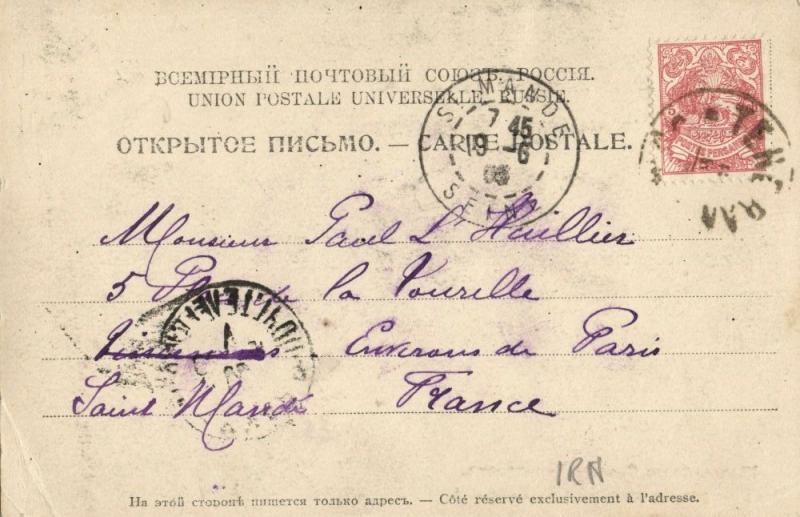 ВСЕМІРНЫЙ ПОЧТОВЫЙ СОЮЗЪ. РОССІЯ.
UNION POSTALE UNIVERSELLE. RUSSIE.
ОТКРЫТОЕ ПИСЬМО. — CARTE POSTALE.
ST MANDE
7 45
19 - 6
SEINE
TEHERAN
Monsieur Paul L'Huillier
5 de la Tourelle
Vincennes Environs de Paris
Saint Mandé France
IRN
На этой сторонѣ пишется только адресъ. — Côté réservé exclusivement à l'adresse.